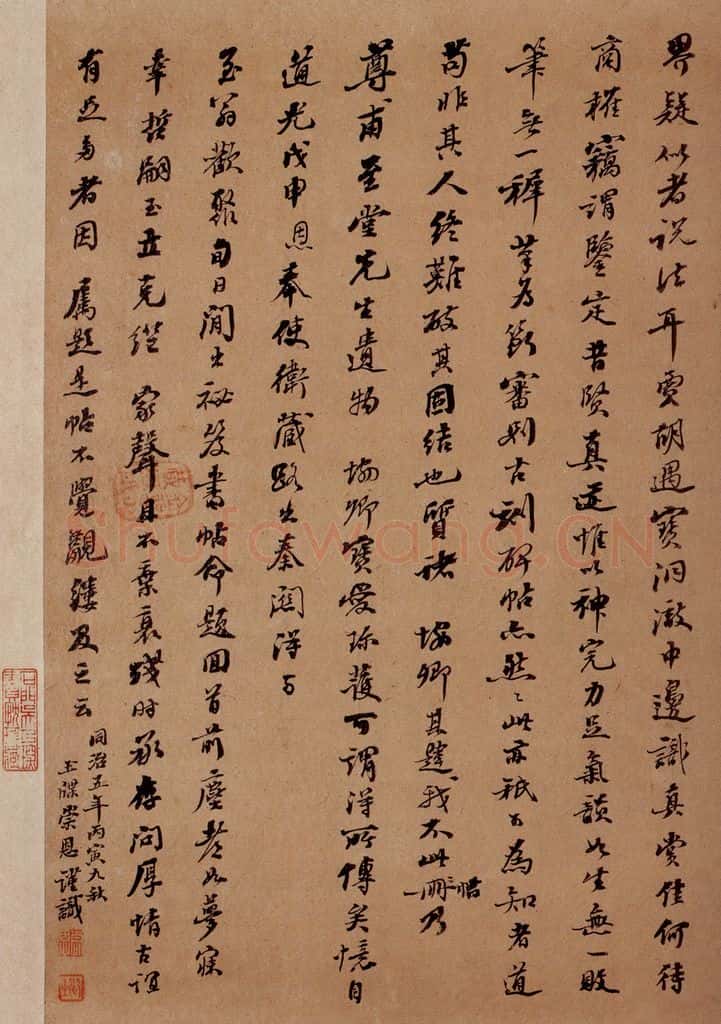 界疑似者說法耳賈胡遇寶洞澈中邊識真賞佳何待
商榷竊謂鑒定昔賢真迹惟以神完力足氣韻如生無一敗
筆無一穉筆為斷審別古刻碑帖亦然然此亦祇可為知者道
苟非其人終難破其固結也質諸 卿其韙我不此冊乃
帖
尊甫至堂先生遺物 卿寶愛珍護可謂得所傳矣憶自
道光戊申恩奉使衛藏路出秦關得與
至翁歡聚旬日間出祕笈書帖命題回首前塵老如夢寐
幸哲嗣玉克繼家聲且不棄衰殘時承存問厚情古誼
有出者因屬題是帖不覺覼縷及之云
同治五年丙寅九秋
玉牒崇恩謹識
Shufawang.CN